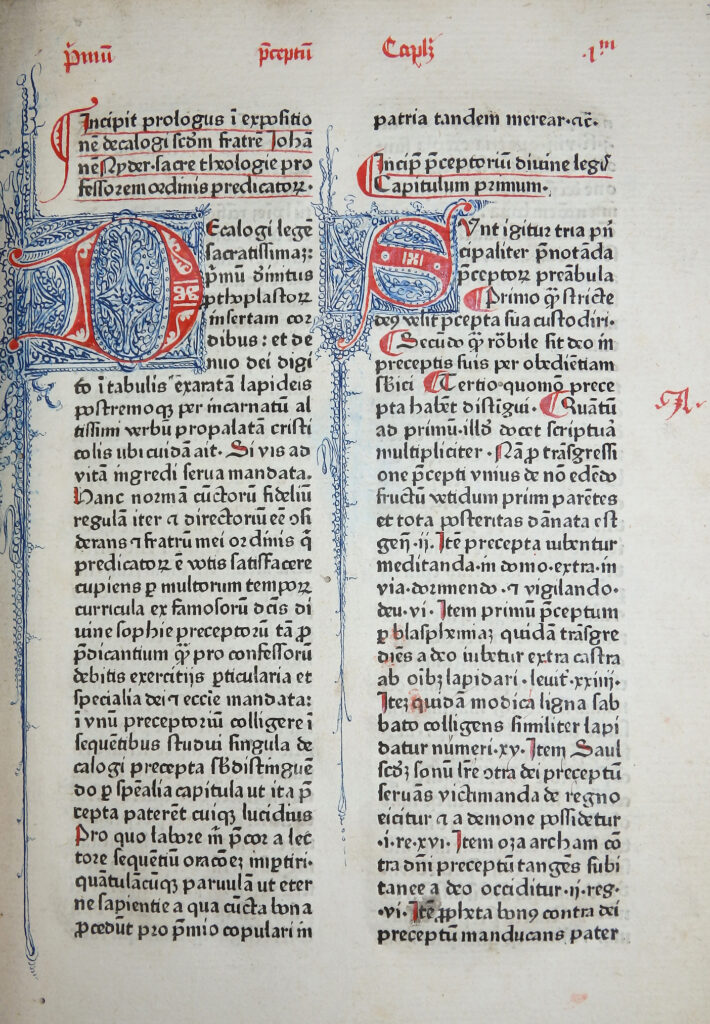 p̄mū p̄ceptū Caplꝫ .1m
Incipit prologus ī expositio
nē decalogi scd̄m fratrē Johā
nē Nyder·sacre theologie pro
fessorem ordinis predicatoꝝ·
DEcalogi legē
sacratissimaꝫ
p̄mū diuinitus
ꝓthoplastoꝝ
insertam cor
dibus: et de
nuo dei digi
to ī tabulis exaratā lapideis
postremoqꝫ per incarnatū al
tissimi verbū propalatā cristi
colis ubi cuidā ait. Si vis ad
vitā ingredi serua mandata.
Hanc normā cūctorū fideliū
regulā iter ⁊ directoriū eē ꝯsi
derans ⁊ fratrū mei ordinis q̄
predicatoꝝ ē votis satisfacere
cupiens ꝑ multorum tempoꝝ
curricula ex famosorū dc̄is di
uine sophie preceptorū tā ꝓ
p̄dicantium qꝫ pro confessorū
debitis exercitijs ꝑticularia et
specialia dei ⁊ eccīe mandata:
ī vnū preceptoriū colligere ī
sequētibus studui singula de
calogi precepta sb̄distinguē
do ꝑ spēalia capitula ut ita p̄
cepta paterēt cuiqꝫ lucidius
Pro quo labore m̄ p̄cor a lec
tore sequētiū orac̄oēꝫ imꝑtiri·
quātulācūqꝫ paruulā ut eter
ne sapientie a qua cūcta bona
ꝓcedūt pro p̄mio copulari in
patria tandem merear·⁊c̄·
Incip̄ p̄ceptoriū diuine legꝭ
Capitulum primum·
SVnt igitur tria p̄n
cipaliter p̄notāda
p̄ceptoꝝ preābula
Primo qꝫ stricte
deꝰ velit p̄cepta sua custodiri·
Secūdo qꝫ rōbile sit deo in
preceptis suis per obediētiam
sb̄ici Tertio·quomō prece
pta habēt distīgui· Quātū
ad primū·illd̄ docet scriptura
multipliciter·Nā ꝓ trāsgressi
one p̄cepti vnius de nō edēdo
fructū vetidum primi parētes
et tota posteritas dānata est
geñ·ii· Itē precepta iubentur
meditanda·in domo·extra·in
via·dormendo·⁊ vigilando·
deu·vi· Item primū p̄ceptum
ꝑ blasphemiaꝫ quidā trāsgre
diēs a deo iubetur extra castra
ab oībꝫ lapidari·leuit̄·xxiiii·
Iteꝫ quidā modica ligna sab
bato colligens similiter lapi
datur nūmeri·xv· Item Saul
scd̄ꝫ sonū lr̄e ꝯtra dei preceptū
seruās victimanda de regno
eicitur ⁊ a demone possidetur
·i·re·xvi· Item oza archam cō
tra dn̄i preceptū tangēs subi
tanee a deo occiditur·ii·reg·
·vi· Itē ꝓpheta bonꝰ contra dei
preceptū manducans pater
A·